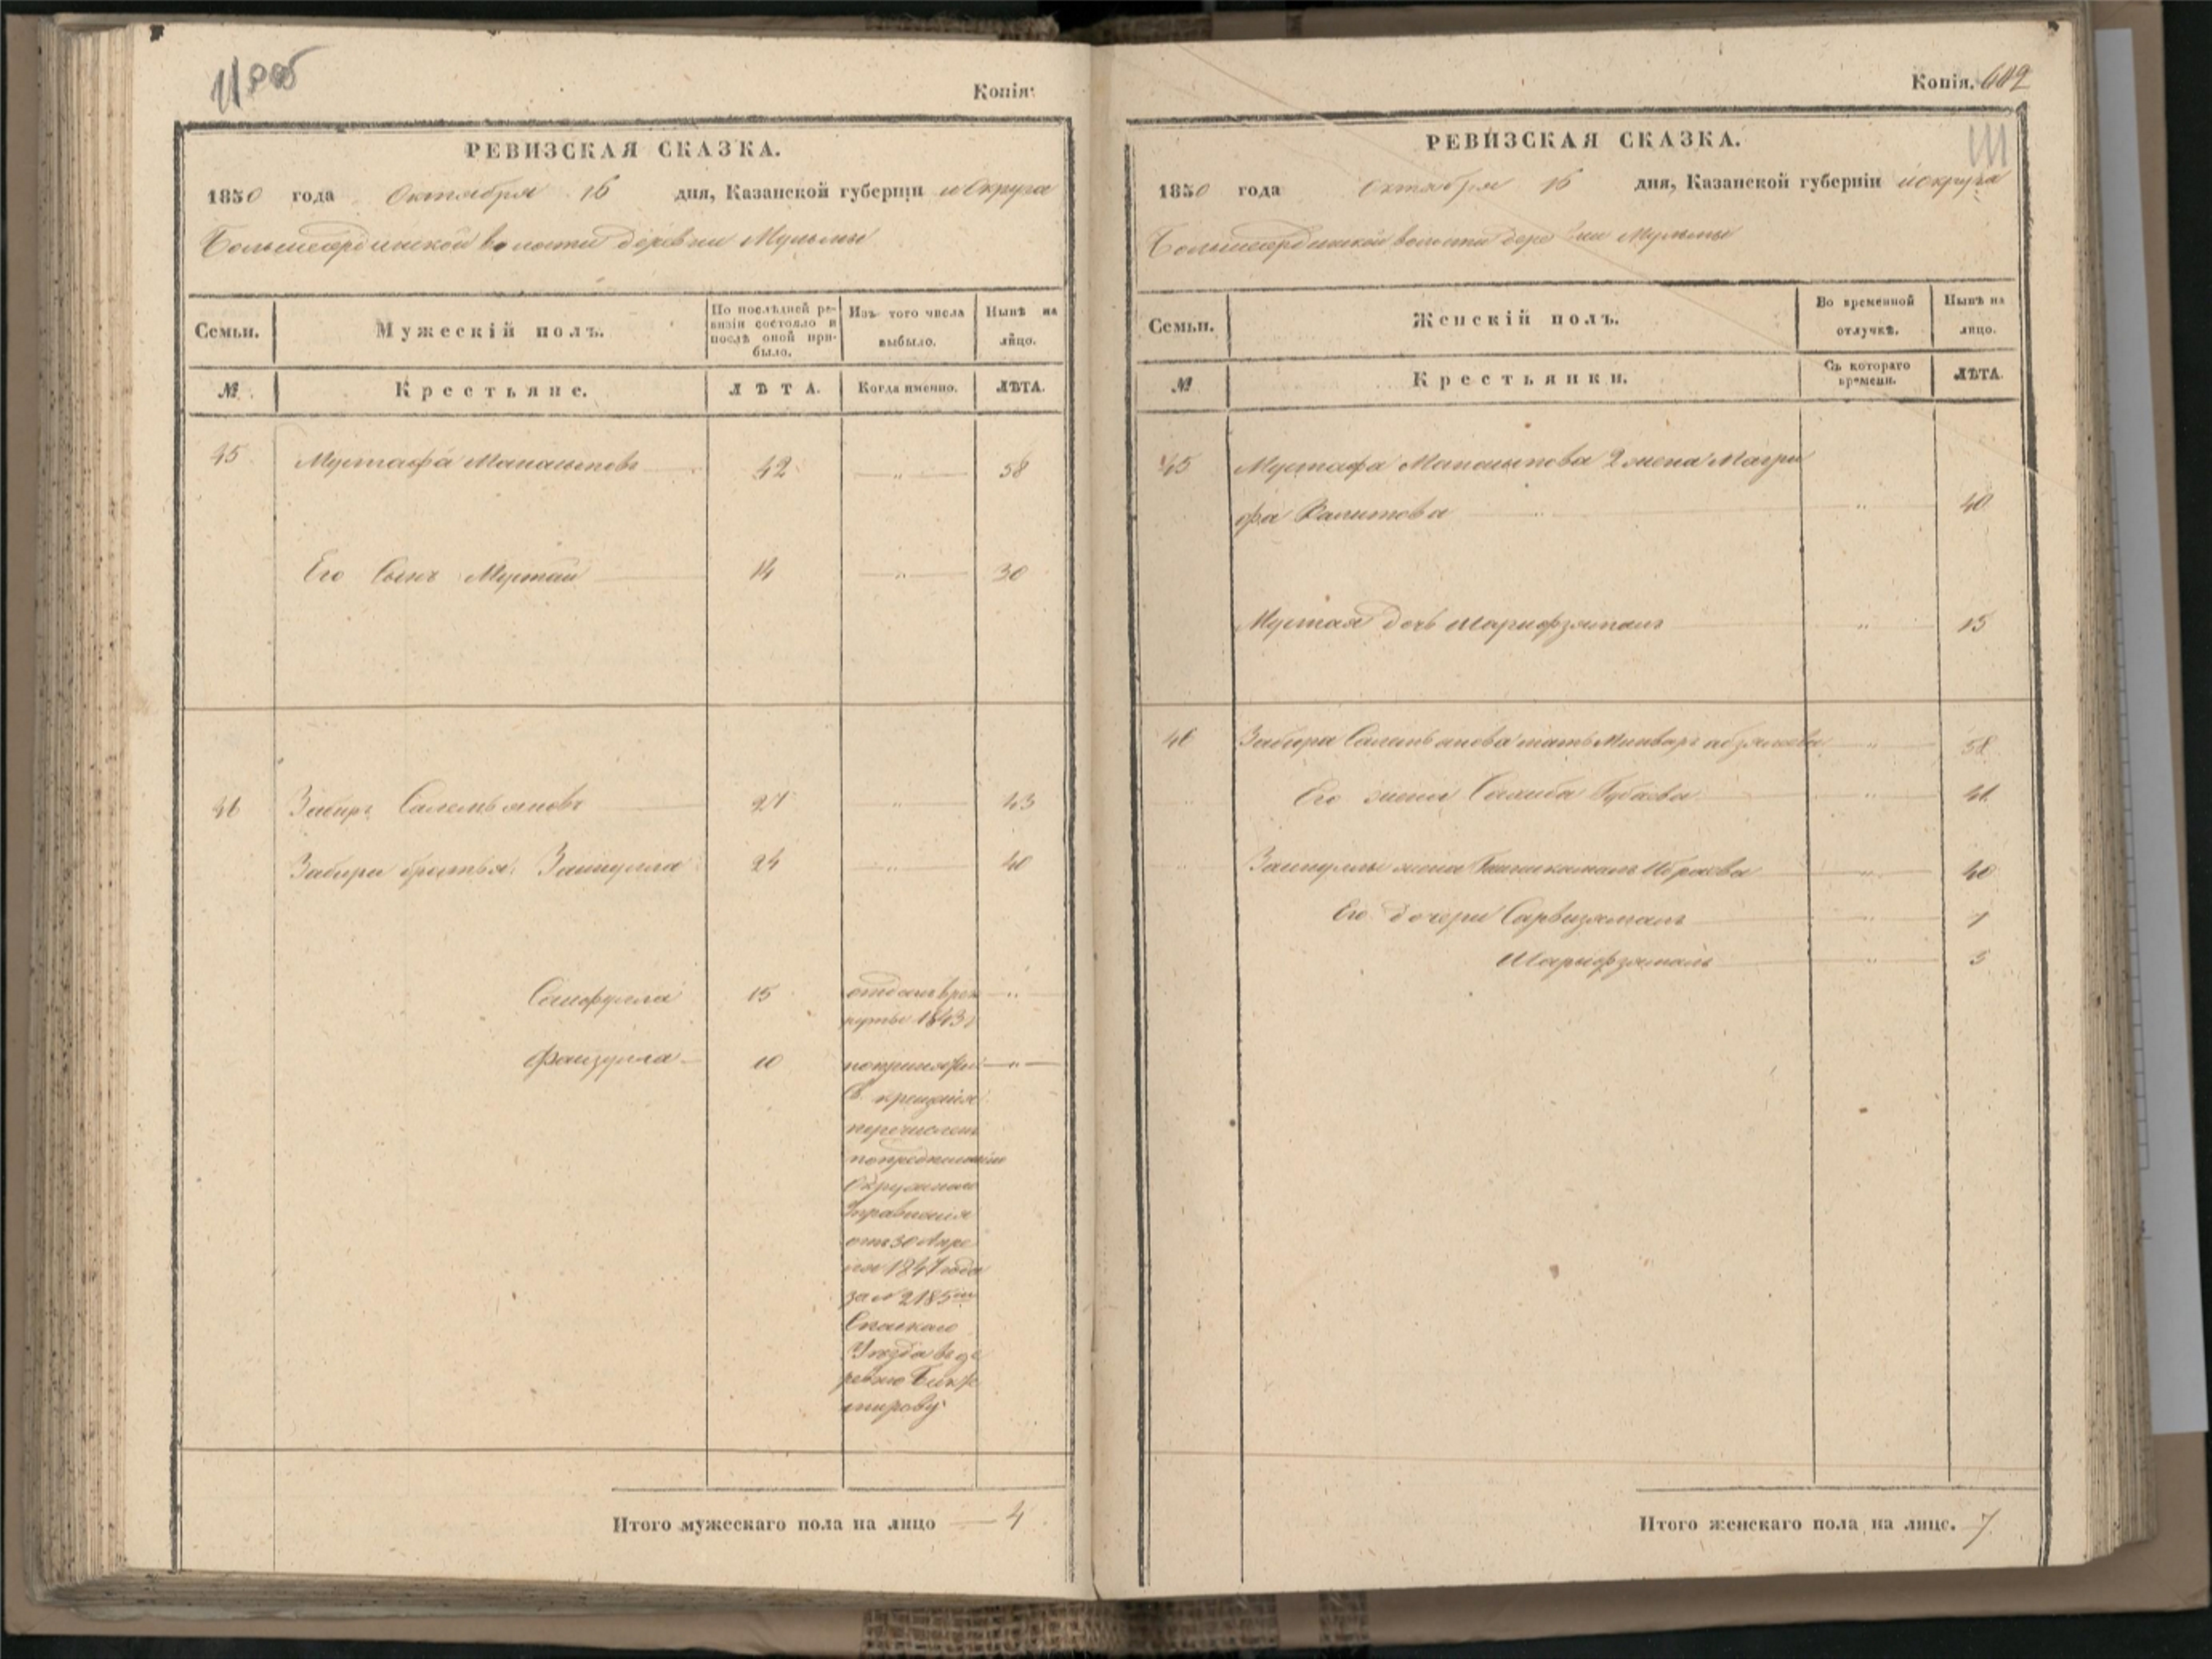 Копія:
РЕВИЗСКАЯ СКАЗКА.
1850 года Октября 16 дня, Казанской губерніи и Округа
Большеатрдинской волости деревни Мульмы
Семьи. Мужескій полъ. По послѣдней ревизіи состояло и послѣ оной прибыло. Изъ того числа выбыло. Нынѣ на лицо.
№ Крестьяне. ЛѢТА. Когда именно. ЛѢТА.
45 Мустафа 42 — " — 58
Его Сынъ Мустай 14 — " — 30
46 Забиръ Салемьяновъ 27 " 43
Забира братья: Зайнулла 24 — " — 40
Сайфулла 15 отданъ врек — " —
руты 1843
Файзулла 10 — " —
Св. крещенія
перечисленъ
по предписанію
Окружнаго
Управленія
отъ 30 Апре
ля 1847 года
за № 2185
Спаскаго
Уѣзда въ де
ревню
Итого мужескаго пола на лицо — 4
Копія. 642
РЕВИЗСКАЯ СКАЗКА.
1850 года Октября 16 дня, Казанской губерніи и округа
волости деревни Мульмы
Семьи. Женскій полъ. Во временной отлучкѣ. Нынѣ на лицо.
№ Крестьянки. Съ котораго времени. ЛѢТА.
45 Мустафа 2 жена Магри
фа Валитова " 40
Мустая дочь Шарифзямалъ " 15
46 Забира Салемьянова мать " 58
Его жена Салиха Губаева " 41
Зайнуллы жена " 40
Его дочери Сарвизямалъ " 7
Шарифзямалъ " 3
Итого женскаго пола на лице. 7